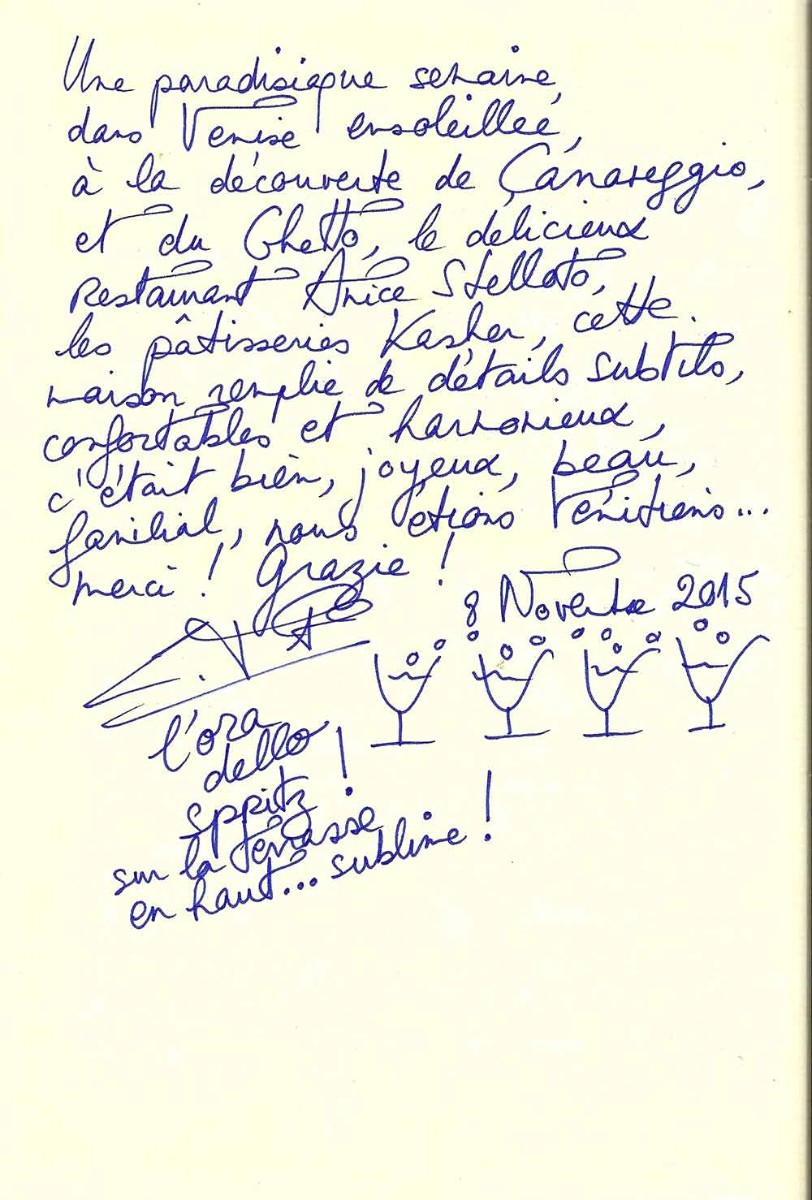 Une paradisiaque semaine,
dans Venise ensoleillée,
à la découverte de Canareggio,
et du Ghetto, le délicieux
Restaurant Anice Stellato,
les pâtisseries Kasher, cette
maison remplie de détails subtils,
confortables et harmonieux,
c'était bien, joyeux, beau,
familial, nous étions Vénitiens...
merci ! Grazie !
8 Novembre 2015
l'ora
dello
sppitz !
sur la terrasse
en haut... sublime !